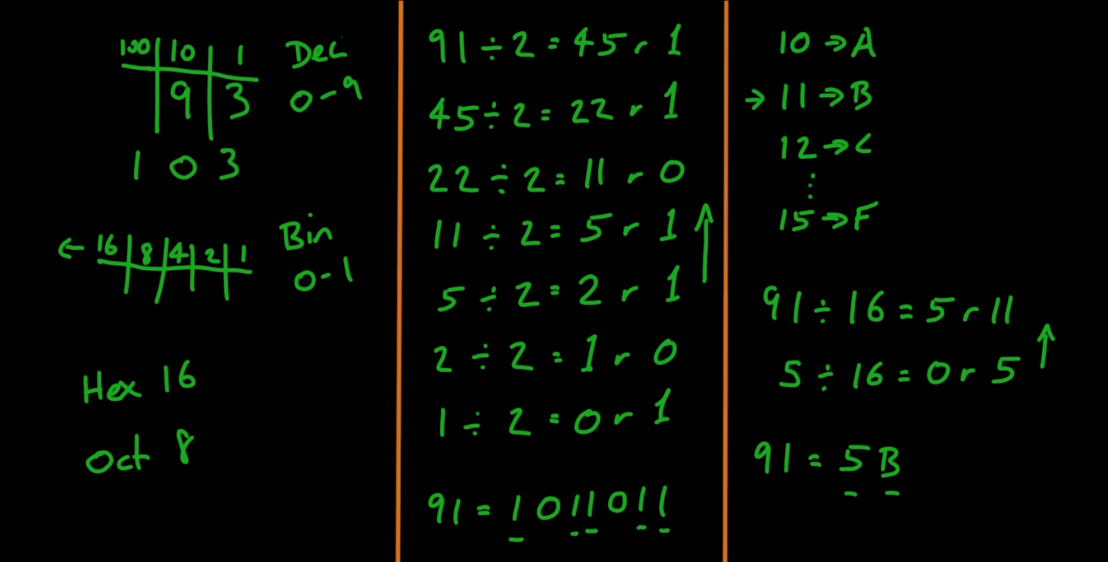 100 10 1 Dec
9 3 0-9
1 0 3
← 16 8 4 2 1 Bin
0-1
Hex 16
Oct 8
91 ÷ 2 = 45 r 1
45 ÷ 2 = 22 r 1
22 ÷ 2 = 11 r 0
11 ÷ 2 = 5 r 1
5 ÷ 2 = 2 r 1
2 ÷ 2 = 1 r 0
1 ÷ 2 = 0 r 1
91 = 1011011
10 → A
→ 11 → B
12 → C
⋮
15 → F
91 ÷ 16 = 5 r 11
5 ÷ 16 = 0 r 5
91 = 5B